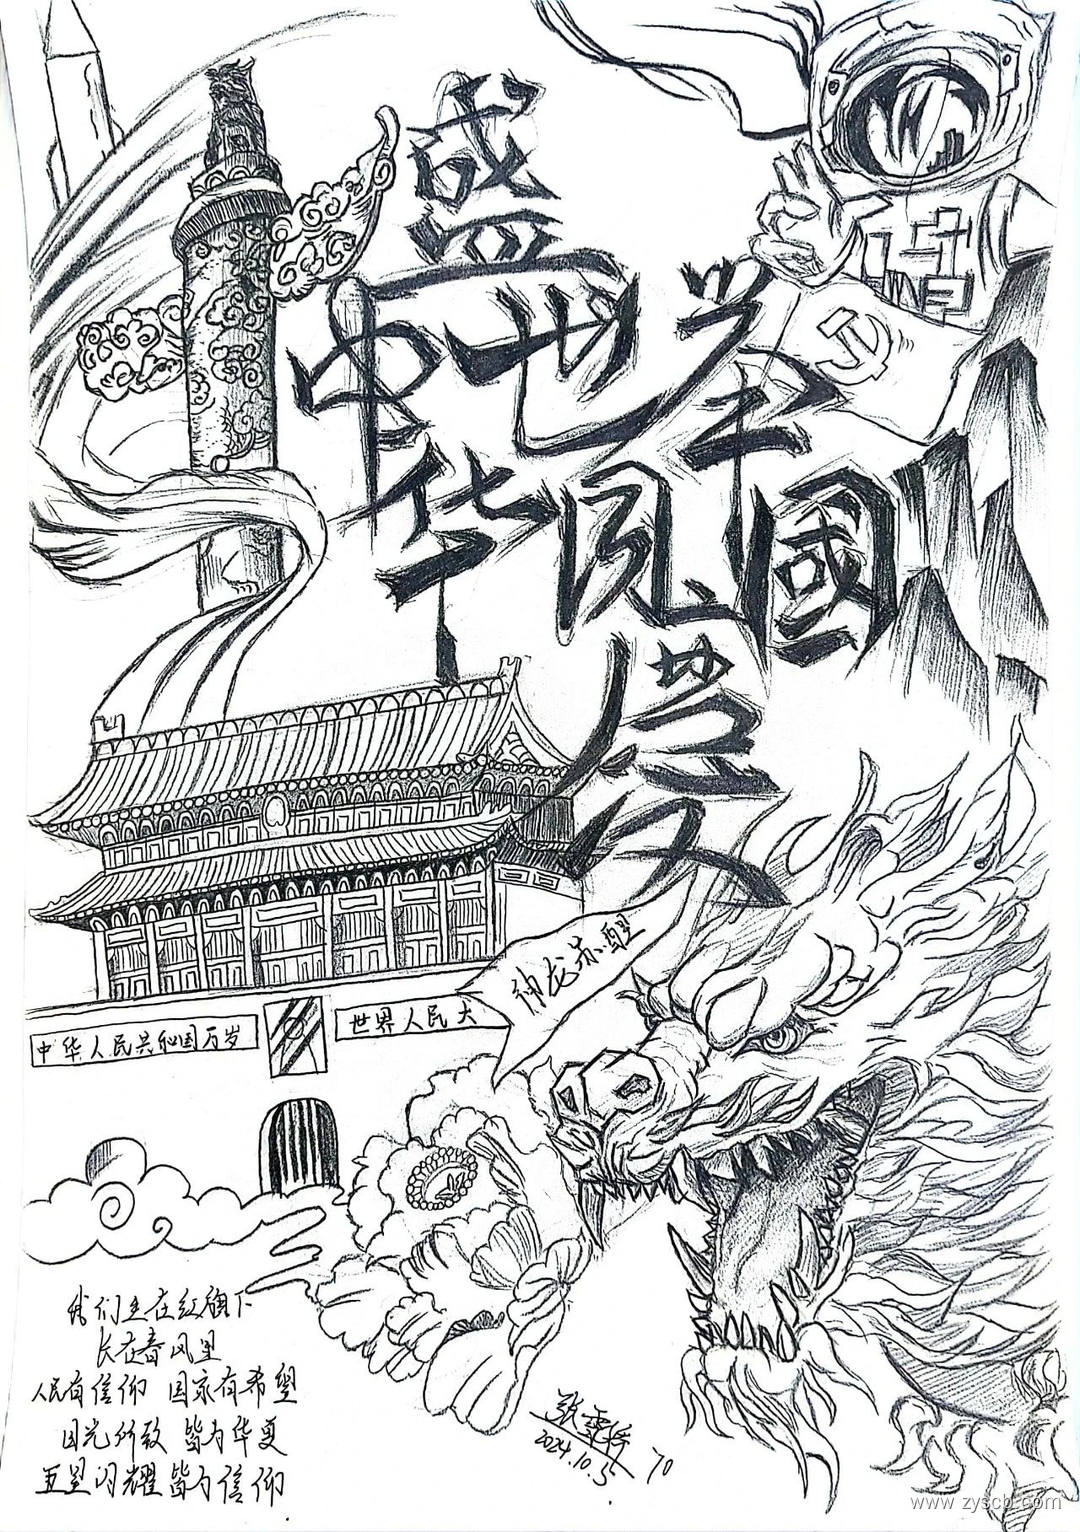 盛
中世举
华风国
神龙苏醒
中华人民共和国万岁 世界人民大
我们生在红旗下
长在春风里
人民有信仰 国家有希望
目光所致 皆为华夏
五星闪耀 皆为信仰
2024.10.5
70
www.zyscb.com